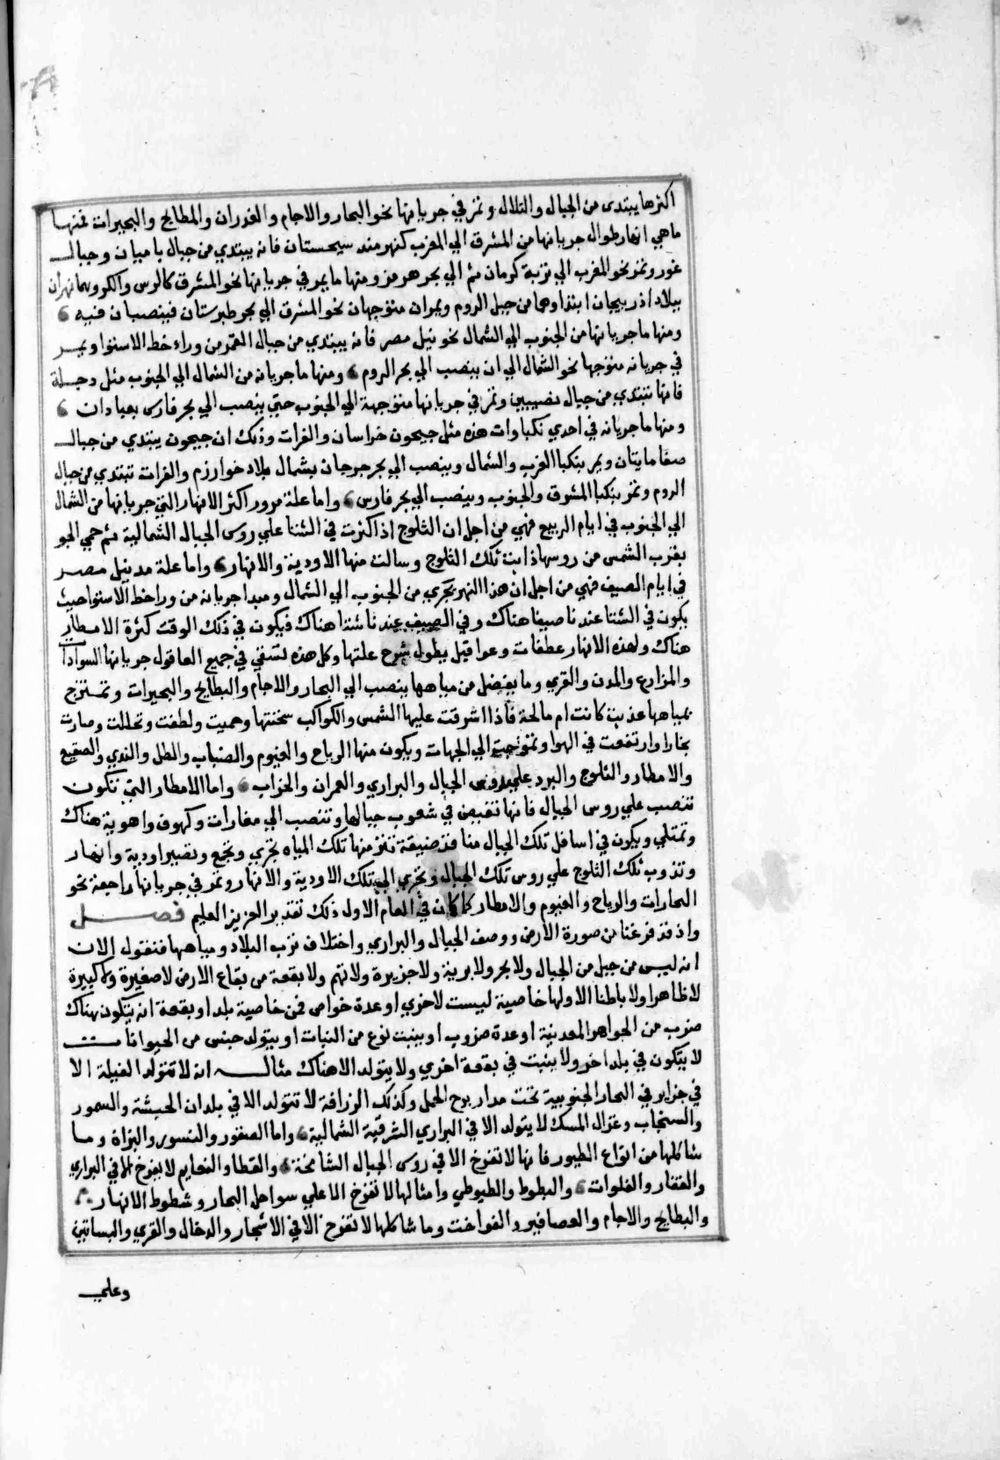 اكثرها يبتدى من الجبال والتلال وتمر في جريانها نحو البحار والاجام والغدران والبطايح والبحيرات فمنها
ما هي انهار طوال جريانها من المشرق الي المغرب كنهر مند سيحستان فانه يبتدي من جبال باميان وجبال
غور وتمر نحو المغرب الي تربة كرمان ثم الي بحر هرمز ومنها ما يمر في جريانها نحو المشرق كالرس والكر وهما نهران
ببلاد اذربيجان ابتداوهما من جبل الروم ويمران متوجهان نحو المشرق الي بحر طبرستان فينصبان فيه
ومنها ما جريانها من الجنوب الي الشمال نحو نيل مصر فانه يبتدي من جبال القمر من وراء خط الاستوا ويمر
في جريانه متوجها نحو الشمال الي ان ينصب الي بحر الروم ومنها ما جريانه من الشمال الي الجنوب مثل دجلة
فانها تبتدي من جبال نصيبين وتمر في جريانها متوجهة الي الجنوب حتي ينصب الي بحر فارس بعبادان
ومنها ما جريانه في احدي نكباوات هذه مثل جيحون خراسان والفرات وذلك ان جيحون يبتدي من جبال
صغامايتان ويمر بنكبا الغرب والشمال وينصب الي بحر جرجان بشمال بلاد خوارزم والفرات تبتدي من جبال
الروم وتمر بنكبا المشرق والجنوب وينصب الي بحر فارس واما علة مرور اكثر الانهار التي جريانها من الشمال
الي الجنوب في ايام الربيع فهي من اجل ان الثلوج اذ اكثرت في الشتا علي روس الجبال الشمالية ثم حمي الجو
بقرب الشمس من روسها ذابت تلك الثلوج وسالت منها الاودية والانهار واما علة مد نيل مصر
في ايام الصيف فهي من اجل ان هذا النهر يجري من الجنوب الي الشمال ومبدا جريانه من ورا خط الاستوا حيث
يكون في الشتا عندنا صيفا هناك وفي الصيف عندنا شتا هناك فيكون في ذلك الوقت كثرة الامطار
هناك ولهذه الانهار عطفات وعواقيل يطول شرح علتها وكل هذه تسقي في جميع العاقول جريانها السوادات
والمزارع والمدن والقري وما يفضل من مياهها ينصب الي البحار والاجام والبطايح والبحيرات وتمتزج
بمياهها عذبة كانت ام مالحة فاذا اشرقت عليها الشمس والكواكب سخنتها وحميت ولطفت وتحللت وصارت
بخارا وارتفعت في الهوا وتموجت الي الجهات ويكون منها الرياح والغيوم والضباب والطل والندي والصقيع
والامطار والثلوج والبرد علي روس الجبال والبراري والعمران والخراب واما الامطار التي تتكون
تنصب علي روس الجبال فانها تفيض في شعوب جبالها وتنصب الي مغارات وكهوف واهوية هناك
وتمتلي ويكون في اسافل تلك الجبال منافذ ضيقة تنز منها تلك المياه تجري وتجمع وتصير اودية وانهار
وتذوب تلك الثلوج علي روس تلك الجبال وتجري الي تلك الاودية والانهار وتمر في جريانها راجعة نحو
البحارات والرياح والغيوم والامطار كما كان في العام الاول ذلك تقدير العزيز العليم فصــل
واذ قد فرغنا من صورة الارض ووصف الجبال والبراري واختلاف ترب البلاد ومياهها فنقول الان
انه ليس من جبل من الجبال ولا بحر ولا برية ولا جزيرة ولا نهر ولا بقعة من بقاع الارض لا صغيرة ولا كبيرة
لا ظاهرا ولا باطنا الا ولها خاصية ليست لاخري او عدة خواص فمن خاصية بلد او بقعة انه يتكون هناك
ضرب من الجواهر المعدنية او عدة ضروب او ينبت نوع من النبات او يتولد جنس من الحيوانات
لا يتكون في بلد اخر ولا ينبت في بقعة اخري ولا يتولد الا هناك مثالــه انه لا تتولد الفيلة الا
في جزاير في البحار الجنوبية تحت مدار برج الحمل وكذلك الزرافة لا تتولد الا في بلدان الحبشة والسمور
والسنجاب وغزال المسك لا يتولد الا في البراري الشرقية الشمالية واما الصقور والنسور والبزاة وما
شاكلها من انواع الطيور فانها لا تفرخ الا في روس الجبال الشامخة والقطا والنعايم لا يفرخ الا في البراري
والقفار والفلوات والبطوط والطيوطي وامثالها لا تفرخ الا علي سواحل البحار وشطوط الانهار
والبطايح والاجام والعصافير والفواخت وما شاكلها لا تفرخ الا في الاشجار والدخال والقري والبساتين
وعلي